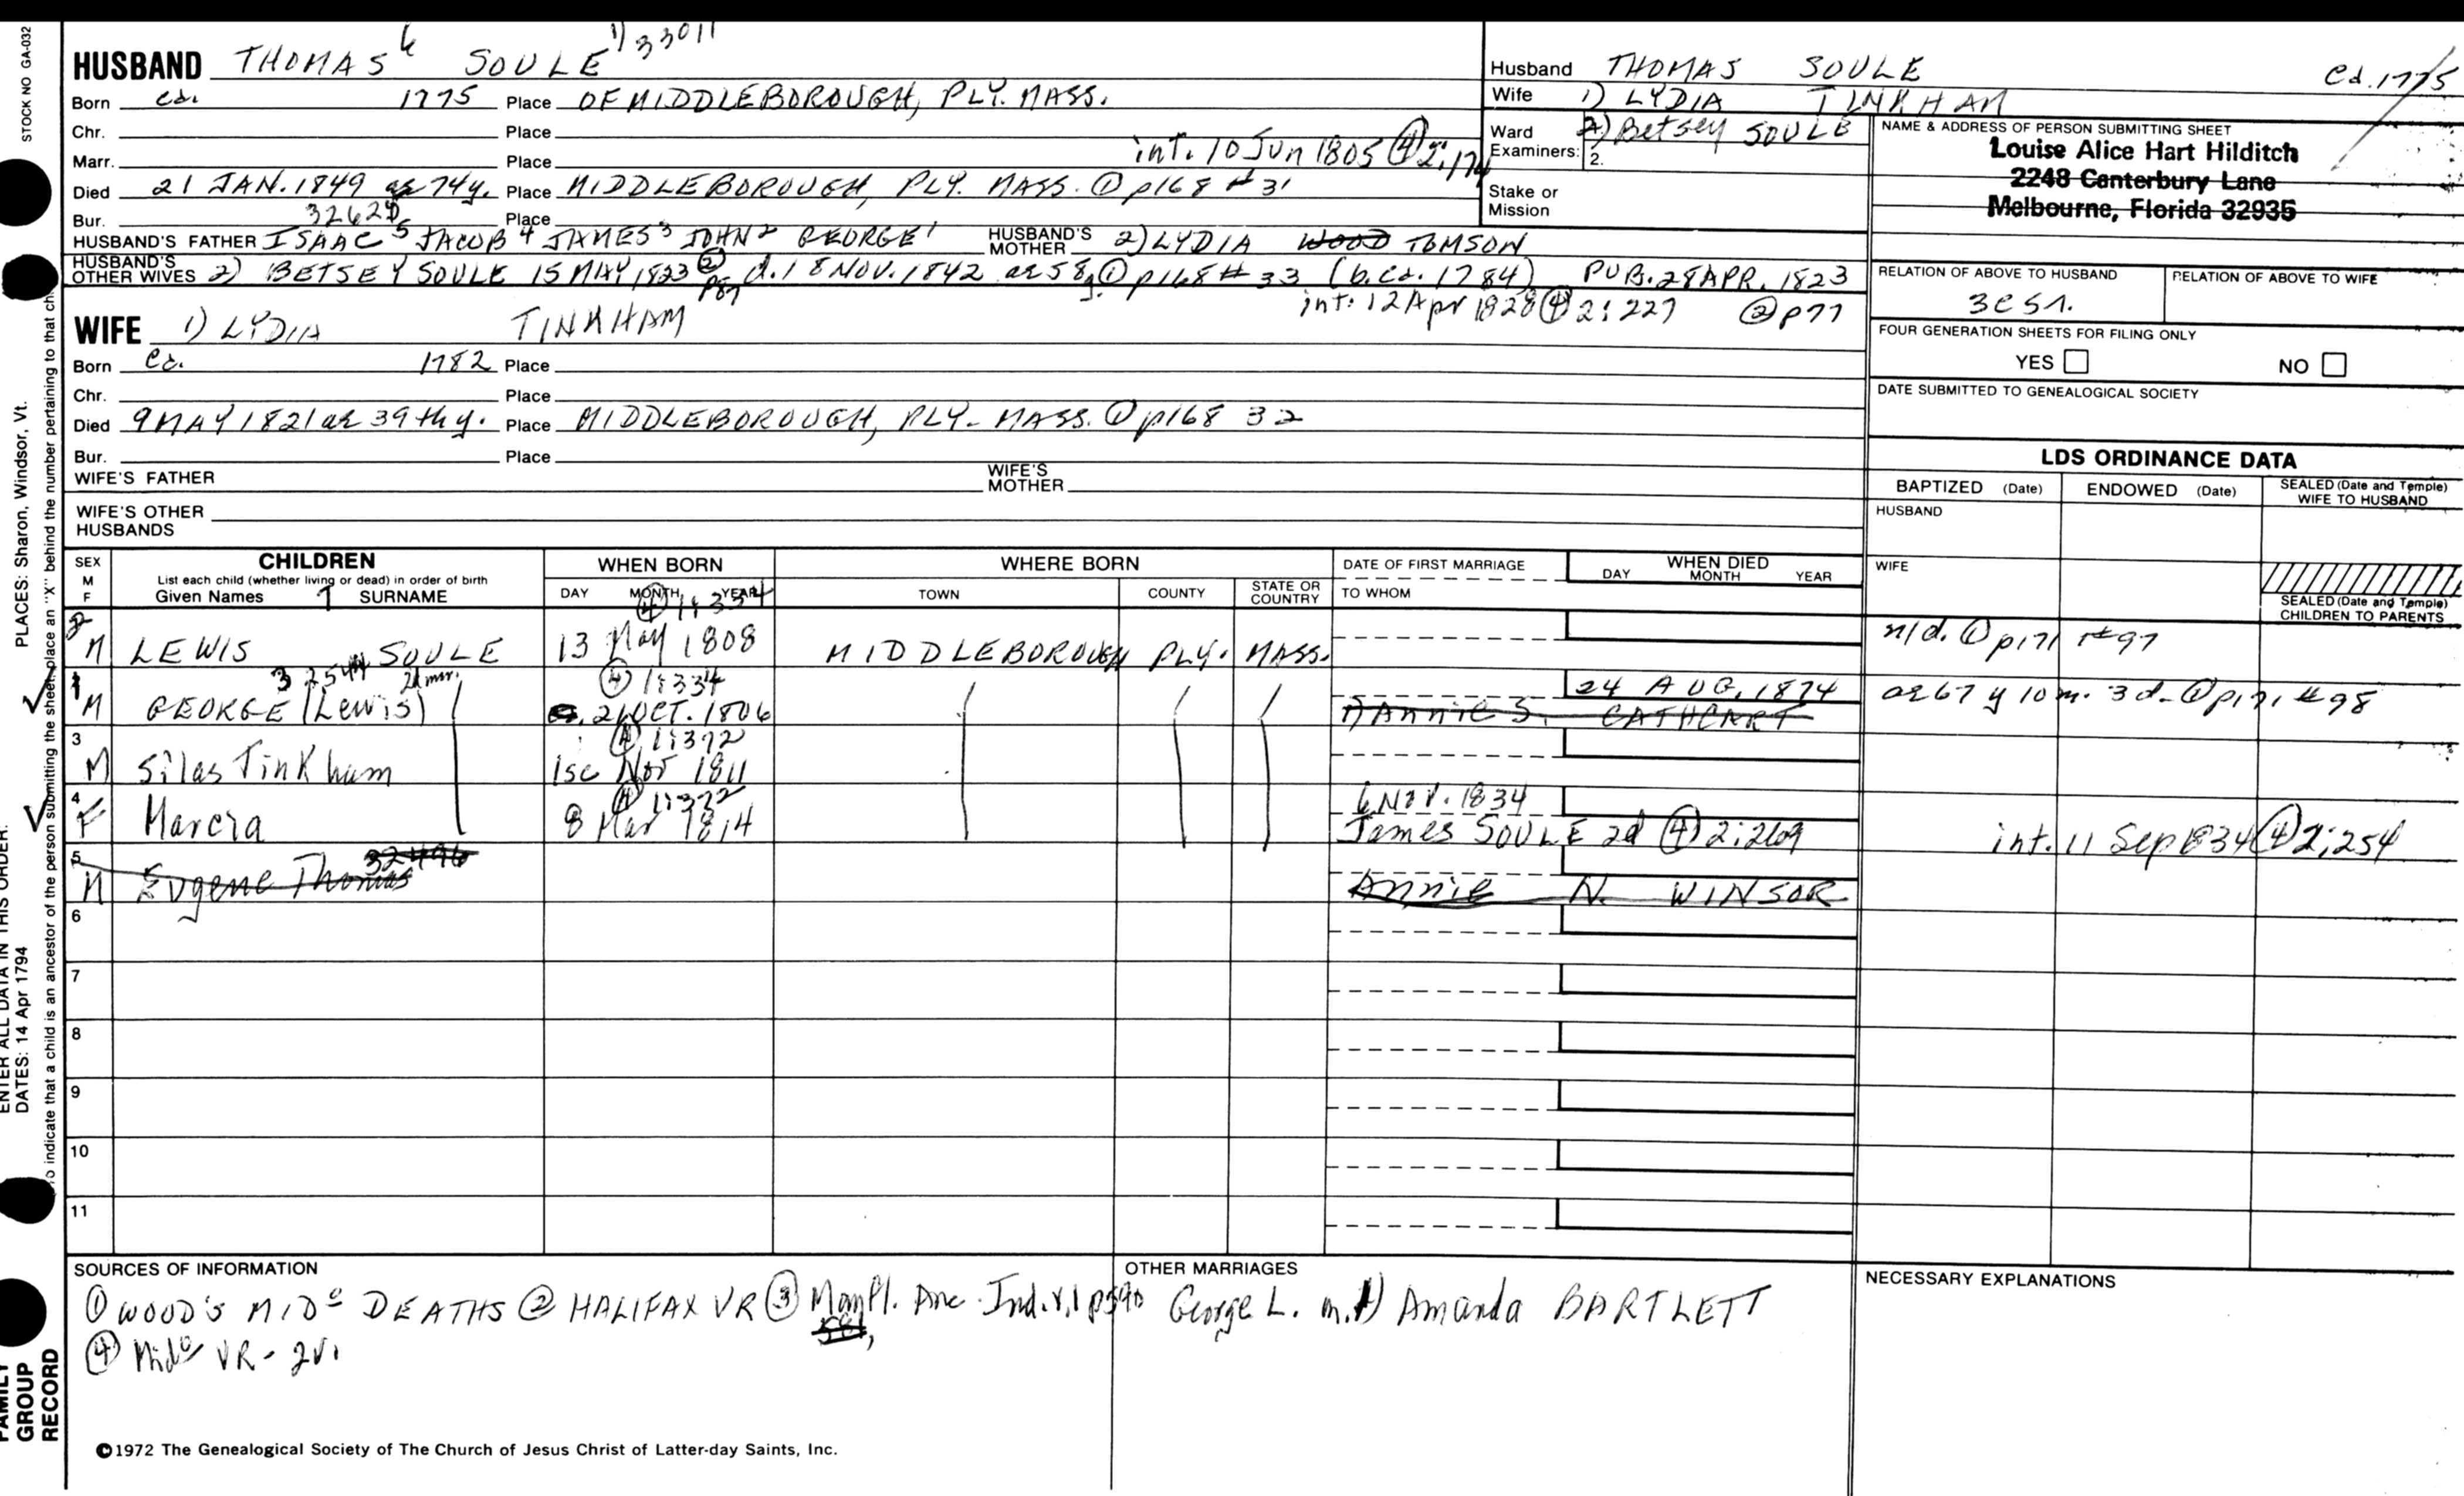 STOCK NO GA-032
HUSBAND THOMAS 6 SOULE 1) 33011
Born ca. 1775 Place OF MIDDLEBOROUGH, PLY. MASS.
Chr. Place
Marr. Place int. 10 Jun 1805 ④ 2:174
Died 21 JAN. 1849 ae 74y. Place MIDDLEBOROUGH, PLY. MASS. ① p168 #31
Bur. Place
HUSBAND'S FATHER ISAAC 5 JACOB 4 JAMES 3 JOHN 2 GEORGE 1 HUSBAND'S MOTHER 2) LYDIA WOOD TOMSON
HUSBAND'S OTHER WIVES 2) BETSEY SOULE 15 MAY 1823 ② p87 d. 18 NOV. 1842 ae 58y. ① p168 #33 (b. ca. 1784) PUB. 28 APR. 1823
int: 12 Apr 1828 ④ 2:227 ② p77
WIFE 1) LYDIA TINKHAM
Born ca. 1782 Place
Chr. Place
Died 9 MAY 1821 ae 39th y. Place MIDDLEBOROUGH, PLY. MASS. ① p168 32
Bur. Place
WIFE'S FATHER WIFE'S MOTHER
WIFE'S OTHER HUSBANDS
Husband THOMAS SOULE ca. 1775
Wife 1) LYDIA TINKHAM
Ward Examiners: 2) Betsey SOULE
2.
Stake or Mission
NAME & ADDRESS OF PERSON SUBMITTING SHEET
Louise Alice Hart Hilditch
2248 Canterbury Lane
Melbourne, Florida 32935
RELATION OF ABOVE TO HUSBAND RELATION OF ABOVE TO WIFE
FOUR GENERATION SHEETS FOR FILING ONLY
YES NO
DATE SUBMITTED TO GENEALOGICAL SOCIETY
LDS ORDINANCE DATA
BAPTIZED (Date) ENDOWED (Date) SEALED (Date and Temple) WIFE TO HUSBAND
HUSBAND
WIFE
SEALED (Date and Temple) CHILDREN TO PARENTS
SEX M F CHILDREN List each child (whether living or dead) in order of birth Given Names SURNAME
WHEN BORN DAY MONTH YEAR
WHERE BORN TOWN COUNTY STATE OR COUNTRY
DATE OF FIRST MARRIAGE TO WHOM
WHEN DIED DAY MONTH YEAR
④ 1:334
2 M LEWIS SOULE 13 May 1808 MIDDLEBOROUGH PLY. MASS. n/d. ① p171 #97
32544 2d mar. ④ 1:334
1 M GEORGE (Lewis) 21 OCT. 1806 24 AUG. 1874 ae 67 y 10 m. 3 d. ① p171 #98
1) Annie S. CATHCART
④ 1:372
3 M Silas Tinkham Nov 1811
④ 1:372
4 F Marcia 8 Mar 1814 6 Nov. 1834
James SOULE 2d ④ 2:269 int. 11 Sep 1834 ④ 2:254
5 M Eugene Thomas 32496 Annie N. WINSOR
6
7
8
9
10
11
SOURCES OF INFORMATION
① WOOD'S MIDº DEATHS ② HALIFAX VR ③ Mayfl. Anc. Ind. v.1 p590
④ Midº VR - 2v.
OTHER MARRIAGES
George L. m. 1) Amanda BARTLETT
NECESSARY EXPLANATIONS
©1972 The Genealogical Society of The Church of Jesus Christ of Latter-day Saints, Inc.
PLACES: Sharon, Windsor, Vt.
ENTER ALL DATA IN THIS ORDER:
DATES: 14 Apr 1794
To indicate that a child is an ancestor of the person submitting the sheet, place an "X" behind the number pertaining to that ch
FAMILY GROUP RECORD